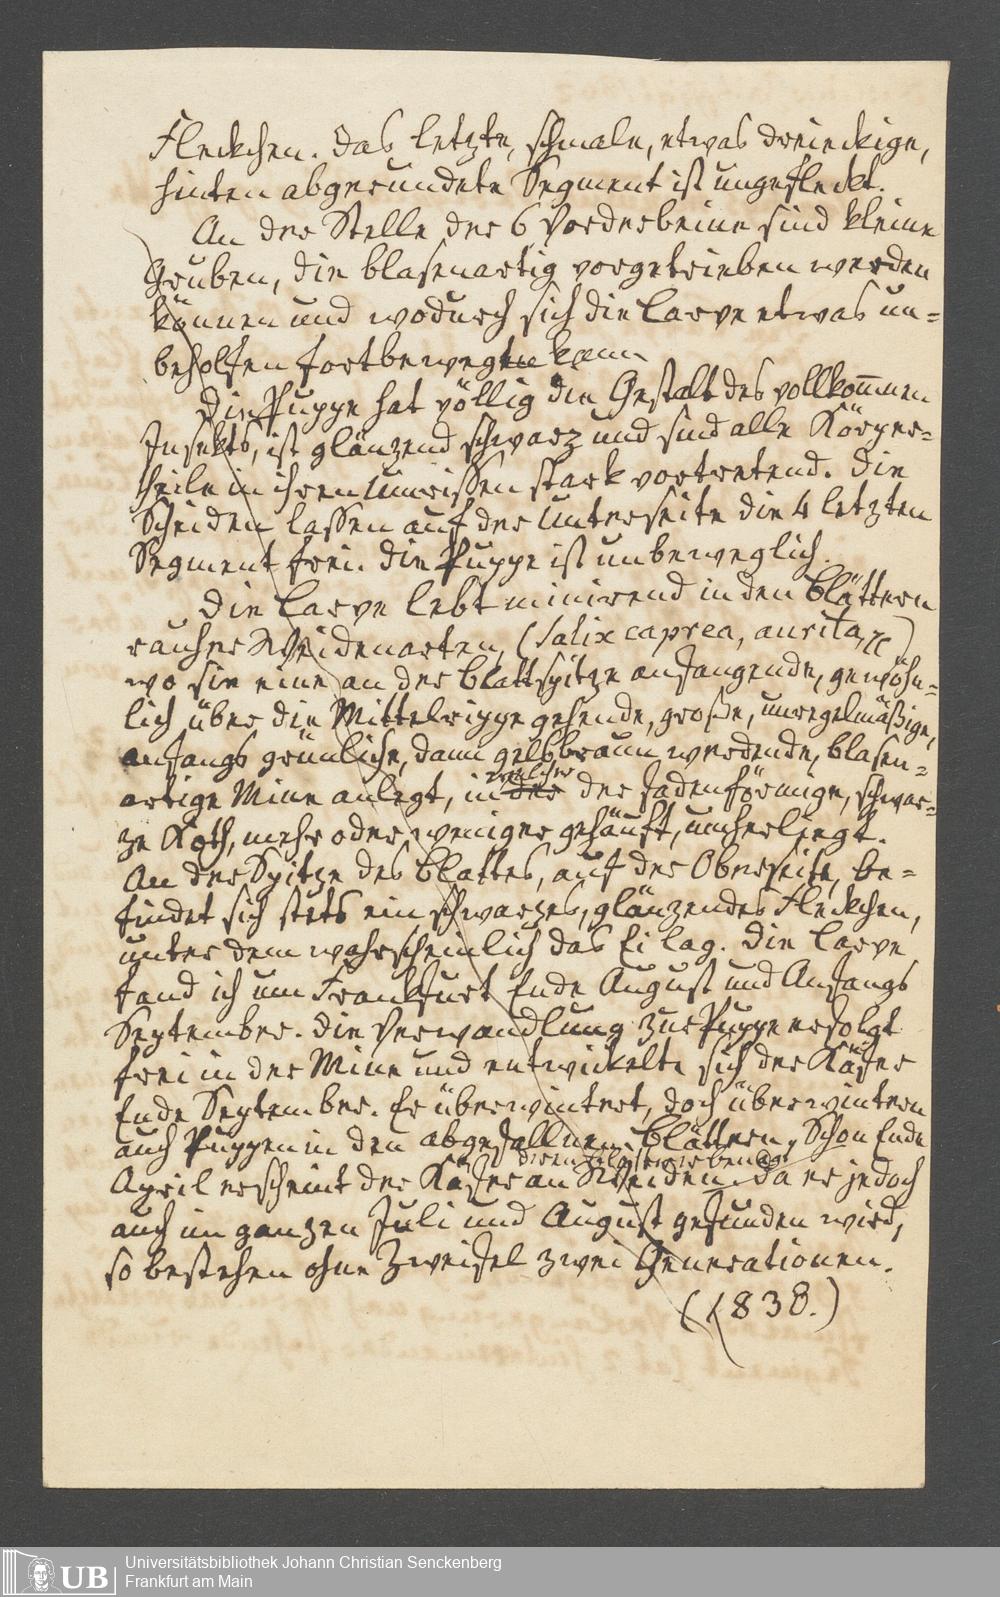 Fleckchen. Das letzte, schmale, etwas dreieckige,
hinten abgerundete Segment ist ungefleckt.
An der Stelle der 6 Vorderbeine sind kleine
Gruben, die blasenartig vorgetrieben werden
können und wodurch sich die Larve etwas un=
beholfen fortbewegen kann.
Die Puppe hat völlig die Gestalt des vollkom̅nen
Insekts, ist glänzend schwarz und sind alle Körper=
theile in ihren Umrissen stark vortretend. Die
Scheiden lassen auf der Unterseite die 4 letzten
Segment frei. Die Puppe ist unbeweglich.
Die Larve lebt minirend in den Blättern
rauher Weidenarten, (Salix caprea, aurita, )
wo sie eine an der Blattspitze anfangende, gewöhn=
lich über die Mittelrippe gehende, große, unregelmäßige,
anfangs grünliche, dann gelbbraun werdende, blasen=
welcher
artige Mine anlegt, in der der fadenförmige, schwar=
ze Koth, mehr oder weniger gehäuft, umherliegt.
An der Spitze des Blattes, auf der Oberseite, be=
findet sich stets ein schwarzes, glänzendes Fleckchen,
unter dem wahrscheinlich das Ei lag. Die Larve
fand ich um Frankfurt Ende August und Anfangs
September. Die Verwandlung zur Puppe erfolgt
frei in der Mine und entwickelte sich der Käfer
Ende September. Er überwintert, doch überwintern
auch Puppen in den abgefallnen Blättern. Schon Ende
April erscheint der Käfer an Weiden. Da er jedoch
auch im ganzen Juli und August gefunden wird,
so bestehen ohne Zweifel zwei Generationen.
(1838.)
UB
Universitätsbibliothek Johann Christian Senckenberg
Frankfurt am Main